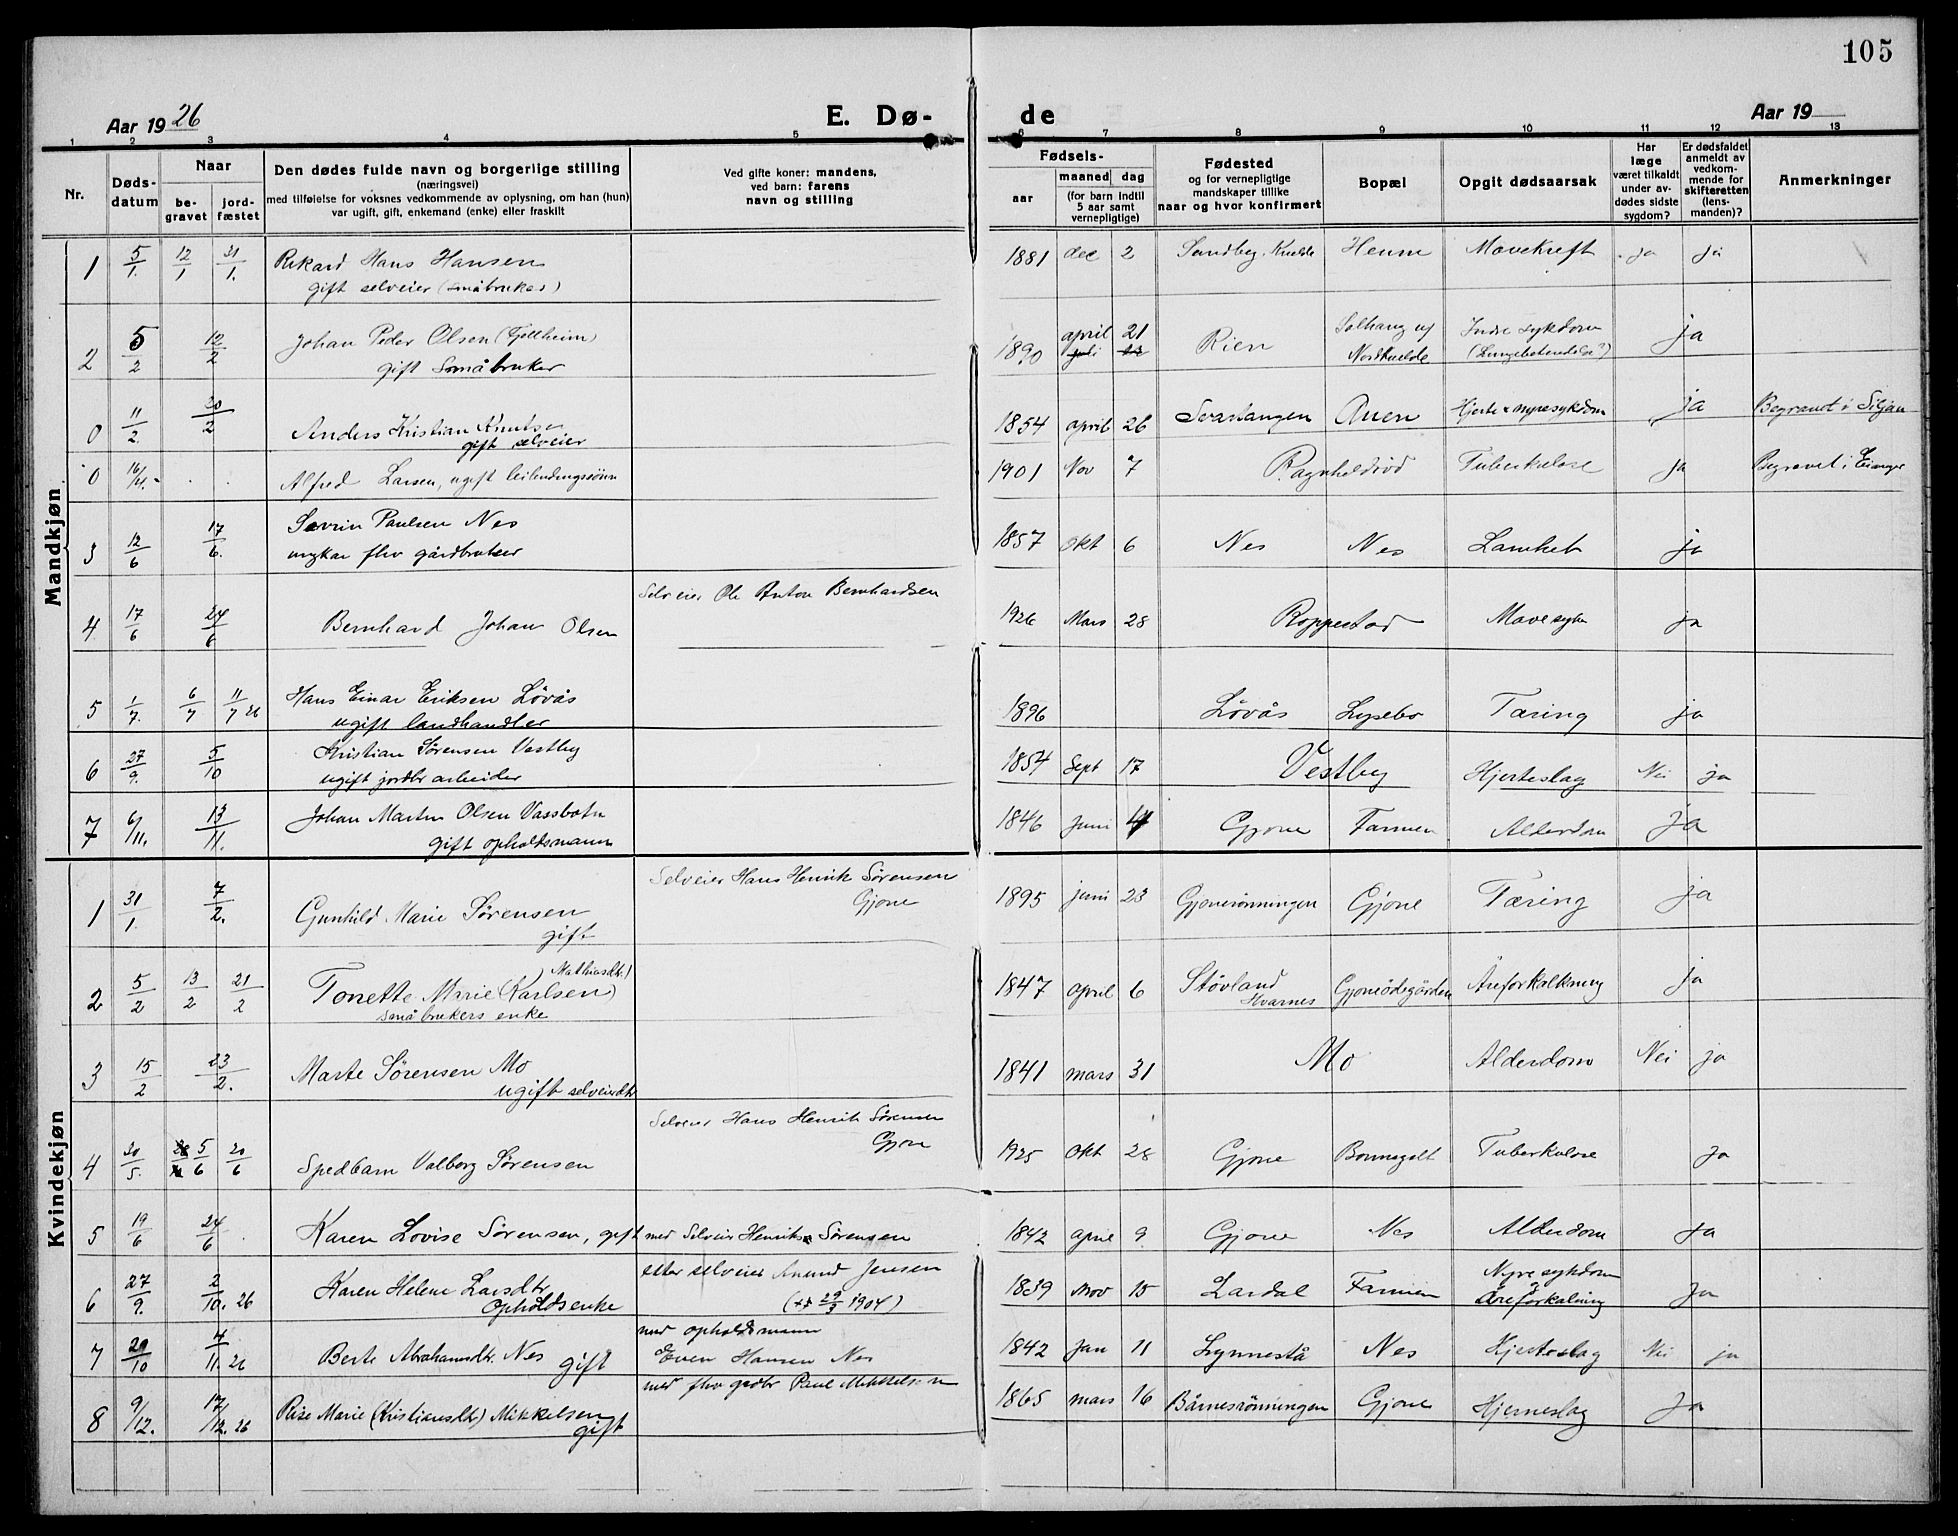 105
Aar 1926 E. Dø- de Aar 19
1 2 3 4 5 6 7 8 9 10 11 12 13
Nr.
Døds-
datum
Naar
be-
gravet
jord-
fæstet
Den dødes fulde navn og borgerlige stilling
(næringsvei)
med tilføielse for voksnes vedkommende av oplysning, om han (hun)
var ugift, gift, enkemand (enke) eller fraskilt
Ved gifte koner: mandens,
ved barn: farens
navn og stilling
Fødsels-
aar
maaned dag
(for barn indtil
5 aar samt
vernepligtige)
Fødested
og for vernepligtige
mandskaper tillike
naar og hvor konfirmert
Bopæl
Opgit dødsaarsak
Har
læge
været tilkaldt
under av-
dødes sidste
sygdom?
Er dødsfaldet
anmeldt av
vedkom-
mende for
skifteretten
(lens-
manden)?
Anmerkninger
Mandkjøn
1 5/1. 12/1 31/1. Rikard Hans Hansen 1881 dec 2 Sandbeg. Kvelde Henm Mavekreft ja ja
gift selveier (småbruker)
2 5/2 12/2 Johan Peder Olsen (Fjellheim) 1890 april 21 Rien Solhaug uf Indre sykdom ja
juli
gift Småbruker Nordkvelde (Lungebetendelse?)
0 11/2. 20/2 Anders Kristian Knutsen 1854 april 26 Svartangen Auen Hjerte & nyresykdom ja Begravet i Siljan
gift selveier
0 16/4. Alfred Larsen, ugift leilendingssønn 1901 Nov 7 Ragnhildrød Tuberkulose ja Begravet i Eidanger
3 12/6 17/6. Severin Paulsen Nes 1857 Okt 6 Nes Nes Lamhet ja
ungkar fhv gårdbruker
4 17/6 24/6 Bernhard Johan Olsen Selveier Ole Anton Bernhardsen 1926 Mars 28 Roppestad Mavesyke ja
5 1/7. 6/7 11/7 26 Hans Einar Eriksen Løvås 1896 Løvås Lysebo Tæring ja
ugift landhandler
6 27/9. 5/10 Kristian Sørensen Vestby 1854 Sept 17 Vestby Hjerteslag Nei ja
ugift jordbr arbeider
7 6/11. 13/11. Johan Martin Olsen Vassbotn 1846 Juni 4 Gjone Farmen Alderdom ja
gift opholdsmann
Kvindekjøn
1 31/1. 7/2. Gunhild Marie Sørensen Selveier Hans Henrik Sørensen 1895 juni 23 Gjonerønningen Gjone Tæring ja
gift Gjone
2 5/2 13/2 21/2 Tonette Marie (Karlsen) Mathiasdtr.) 1847 april 6 Støvland Gjoneødegården Åreforkalkning ja
småbrukers enke Hvarnes
3 15/2 23/2. Marte Sørensen Mo 1841 mars 31 Mo Alderdom Nei ja
ugift selveierdtr
4 30/5. 5/6 20/6 Spedbarn Valborg Sørensen Selveier Hans Henrik Sørensen 1925 Okt 28 Gjone Bonnegolt Tuberkulose ja
Gjone
5 19/6 24/6 Karen Lovise Sørensen, gift med Selveier Henrik Sørensen 1842 april 9 Gjone Nes Alderdom ja
6 27/9. 2/10. 26 Karen Helene Larsdtr. efter selveier Amund Jensen 1839 Nov 15 Lardal Farmen Nyresykdom ja
Opholdsenke (+ 29/3 1904) & Åreforkalning
7 20/10 4/11. 26 Berte Abrahamsdtr. Nes gift med opholdsmann 1842 Jan 11 Lynnestå Nes Hjerteslag Nei ja
Even Hansen Nes
8 9/12. 17/12. 26 Risе Marie (Kristiansdtr) Mikkelsen med fhv grdbr Paul Mikkelsen 1865 mars 16 Bårnesrønningen Gjone Hjerneslag ja
gift